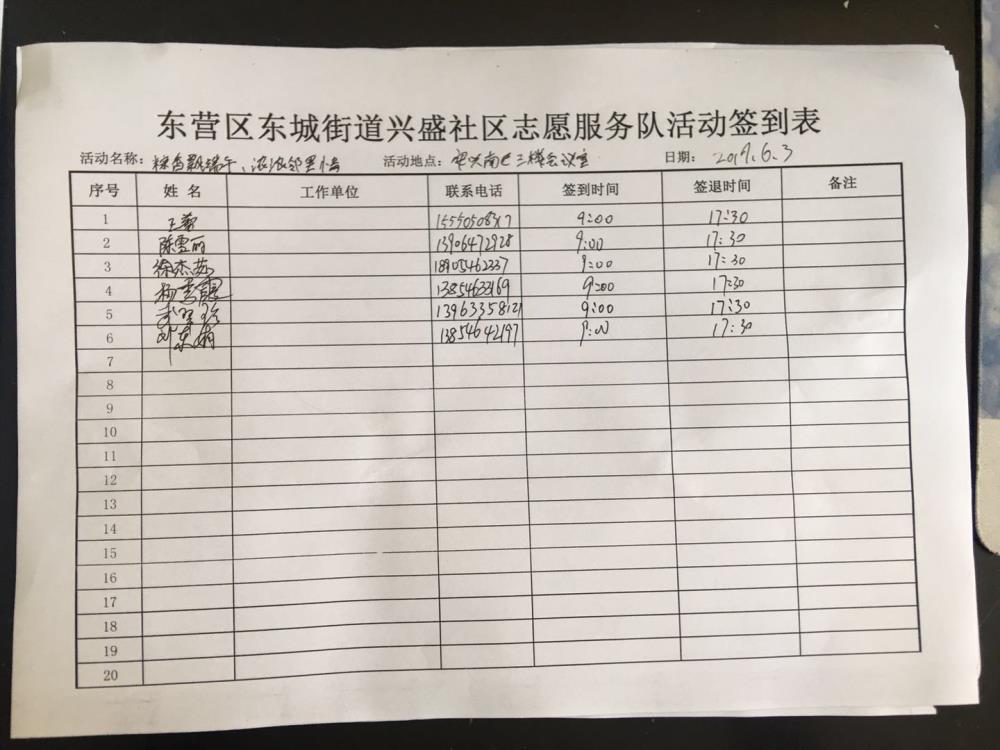 东营区东城街道兴盛社区志愿服务队活动签到表
活动名称：粽香飘端午、浓浓邻里情 活动地点：南区三楼会议室 日期：2019.6.3
序号 姓名 工作单位 联系电话 签到时间 签退时间 备注
1 15550508317 9:00 17:30
2 陈雪丽 13906472928 9:00 17:30
3 徐杰 18905462337 9:00 17:30
4 杨 13854633169 9:00 17:30
5 13963358121 9:00 17:30
6 13854642197 9:00 17:30
7
8
9
10
11
12
13
14
15
16
17
18
19
20